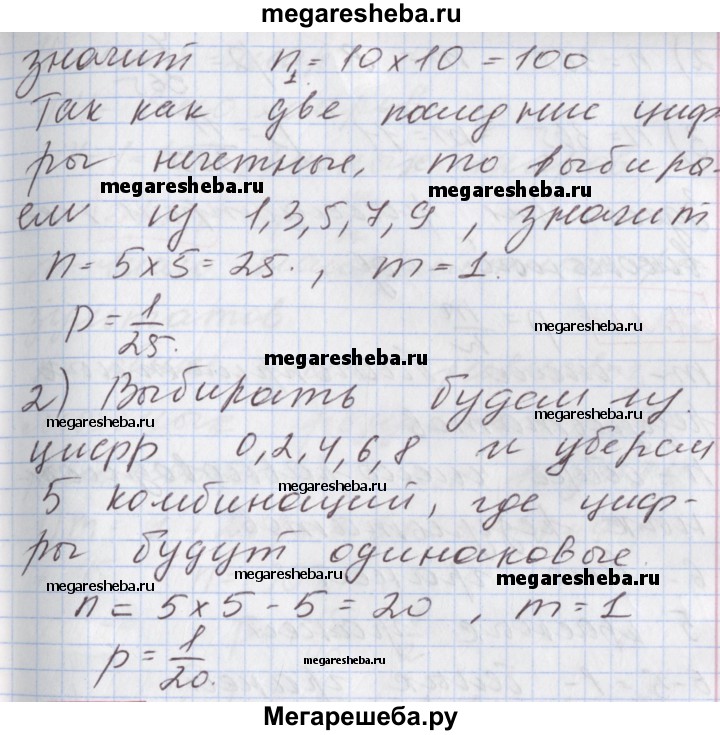 megaresheba.ru
значит n₁ = 10 × 10 = 100
Так как две последние циф-
ры нечетные, то выбира-
megaresheba.ru megaresheba.ru
ем из 1, 3, 5, 7, 9, значит
n = 5 × 5 = 25., m = 1.
p = 1/25.
megaresheba.ru
megaresheba.ru
2) Выбирать будем из
megaresheba.ru megaresheba.ru
цифр 0, 2, 4, 6, 8 и уберем
megaresheba.ru
5 комбинаций, где циф-
ры будут одинаковые.
megaresheba.ru megaresheba.ru
n = 5 × 5 - 5 = 20, m = 1
p = 1/20.
megaresheba.ru
Мегарешеба.ру